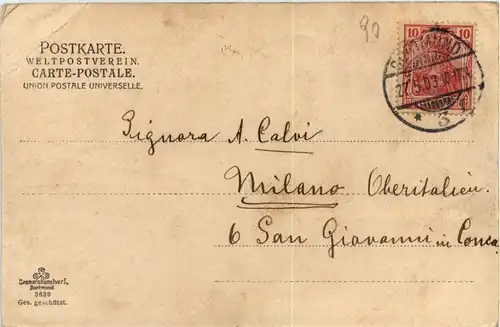 90
POSTKARTE.
WELTPOSTVEREIN.
CARTE-POSTALE.
UNION POSTALE UNIVERSELLE.
10 10
DORTMUND
3
Signora A. Calvi
Milano Oberitalien.
6 San Giovanni in Conca
Dortmund
3639
Ges. geschützt.